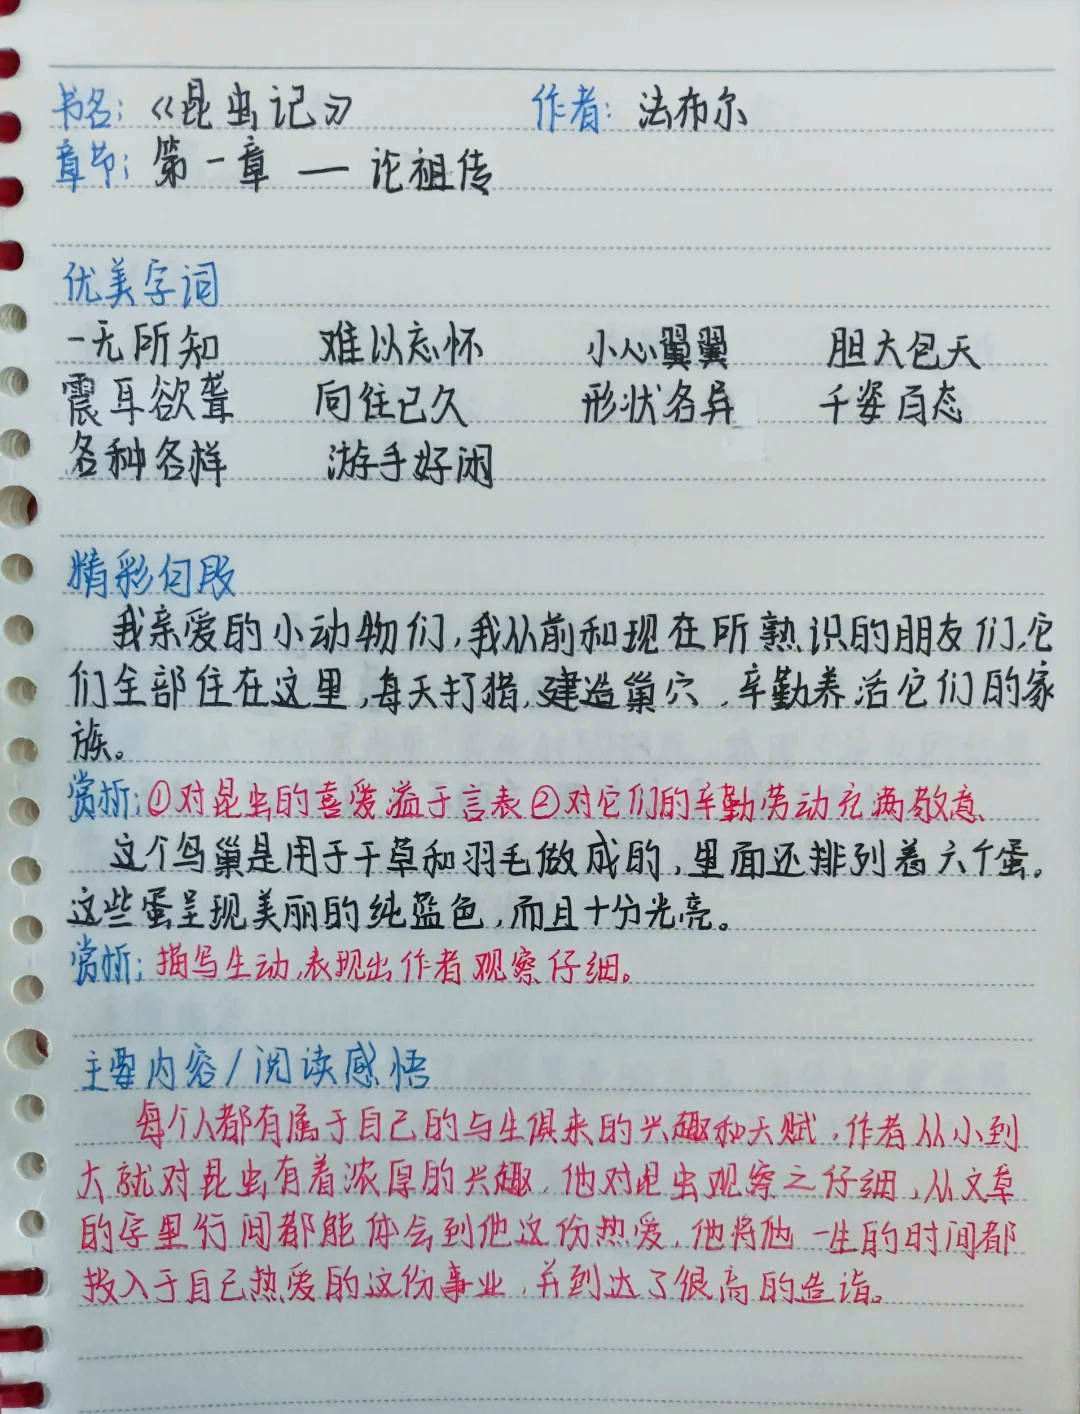 书名：《昆虫记》 作者：法布尔
章节：第一章 — 论祖传
优美字词
一无所知 难以忘怀 小心翼翼 胆大包天
震耳欲聋 向往已久 形状各异 千姿百态
各种各样 游手好闲
精彩句段
我亲爱的小动物们，我从前和现在所熟识的朋友们，它
们全部住在这里，每天打猎，建造巢穴，辛勤养活它们的家
族。
赏析：①对昆虫的喜爱溢于言表②对它们的辛勤劳动充满敬意、
这个鸟巢是用于干草和羽毛做成的，里面还排列着六个蛋。
这些蛋呈现美丽的纯蓝色，而且十分光亮。
赏析：描写生动，表现出作者观察仔细。
主要内容/阅读感悟
每个人都有属于自己的与生俱来的兴趣和天赋，作者从小到
大就对昆虫有着浓厚的兴趣，他对昆虫观察之仔细，从文章
的字里行间都能体会到他这份热爱，他将他一生的时间都
投入于自己热爱的这份事业，并到达了很高的造诣。